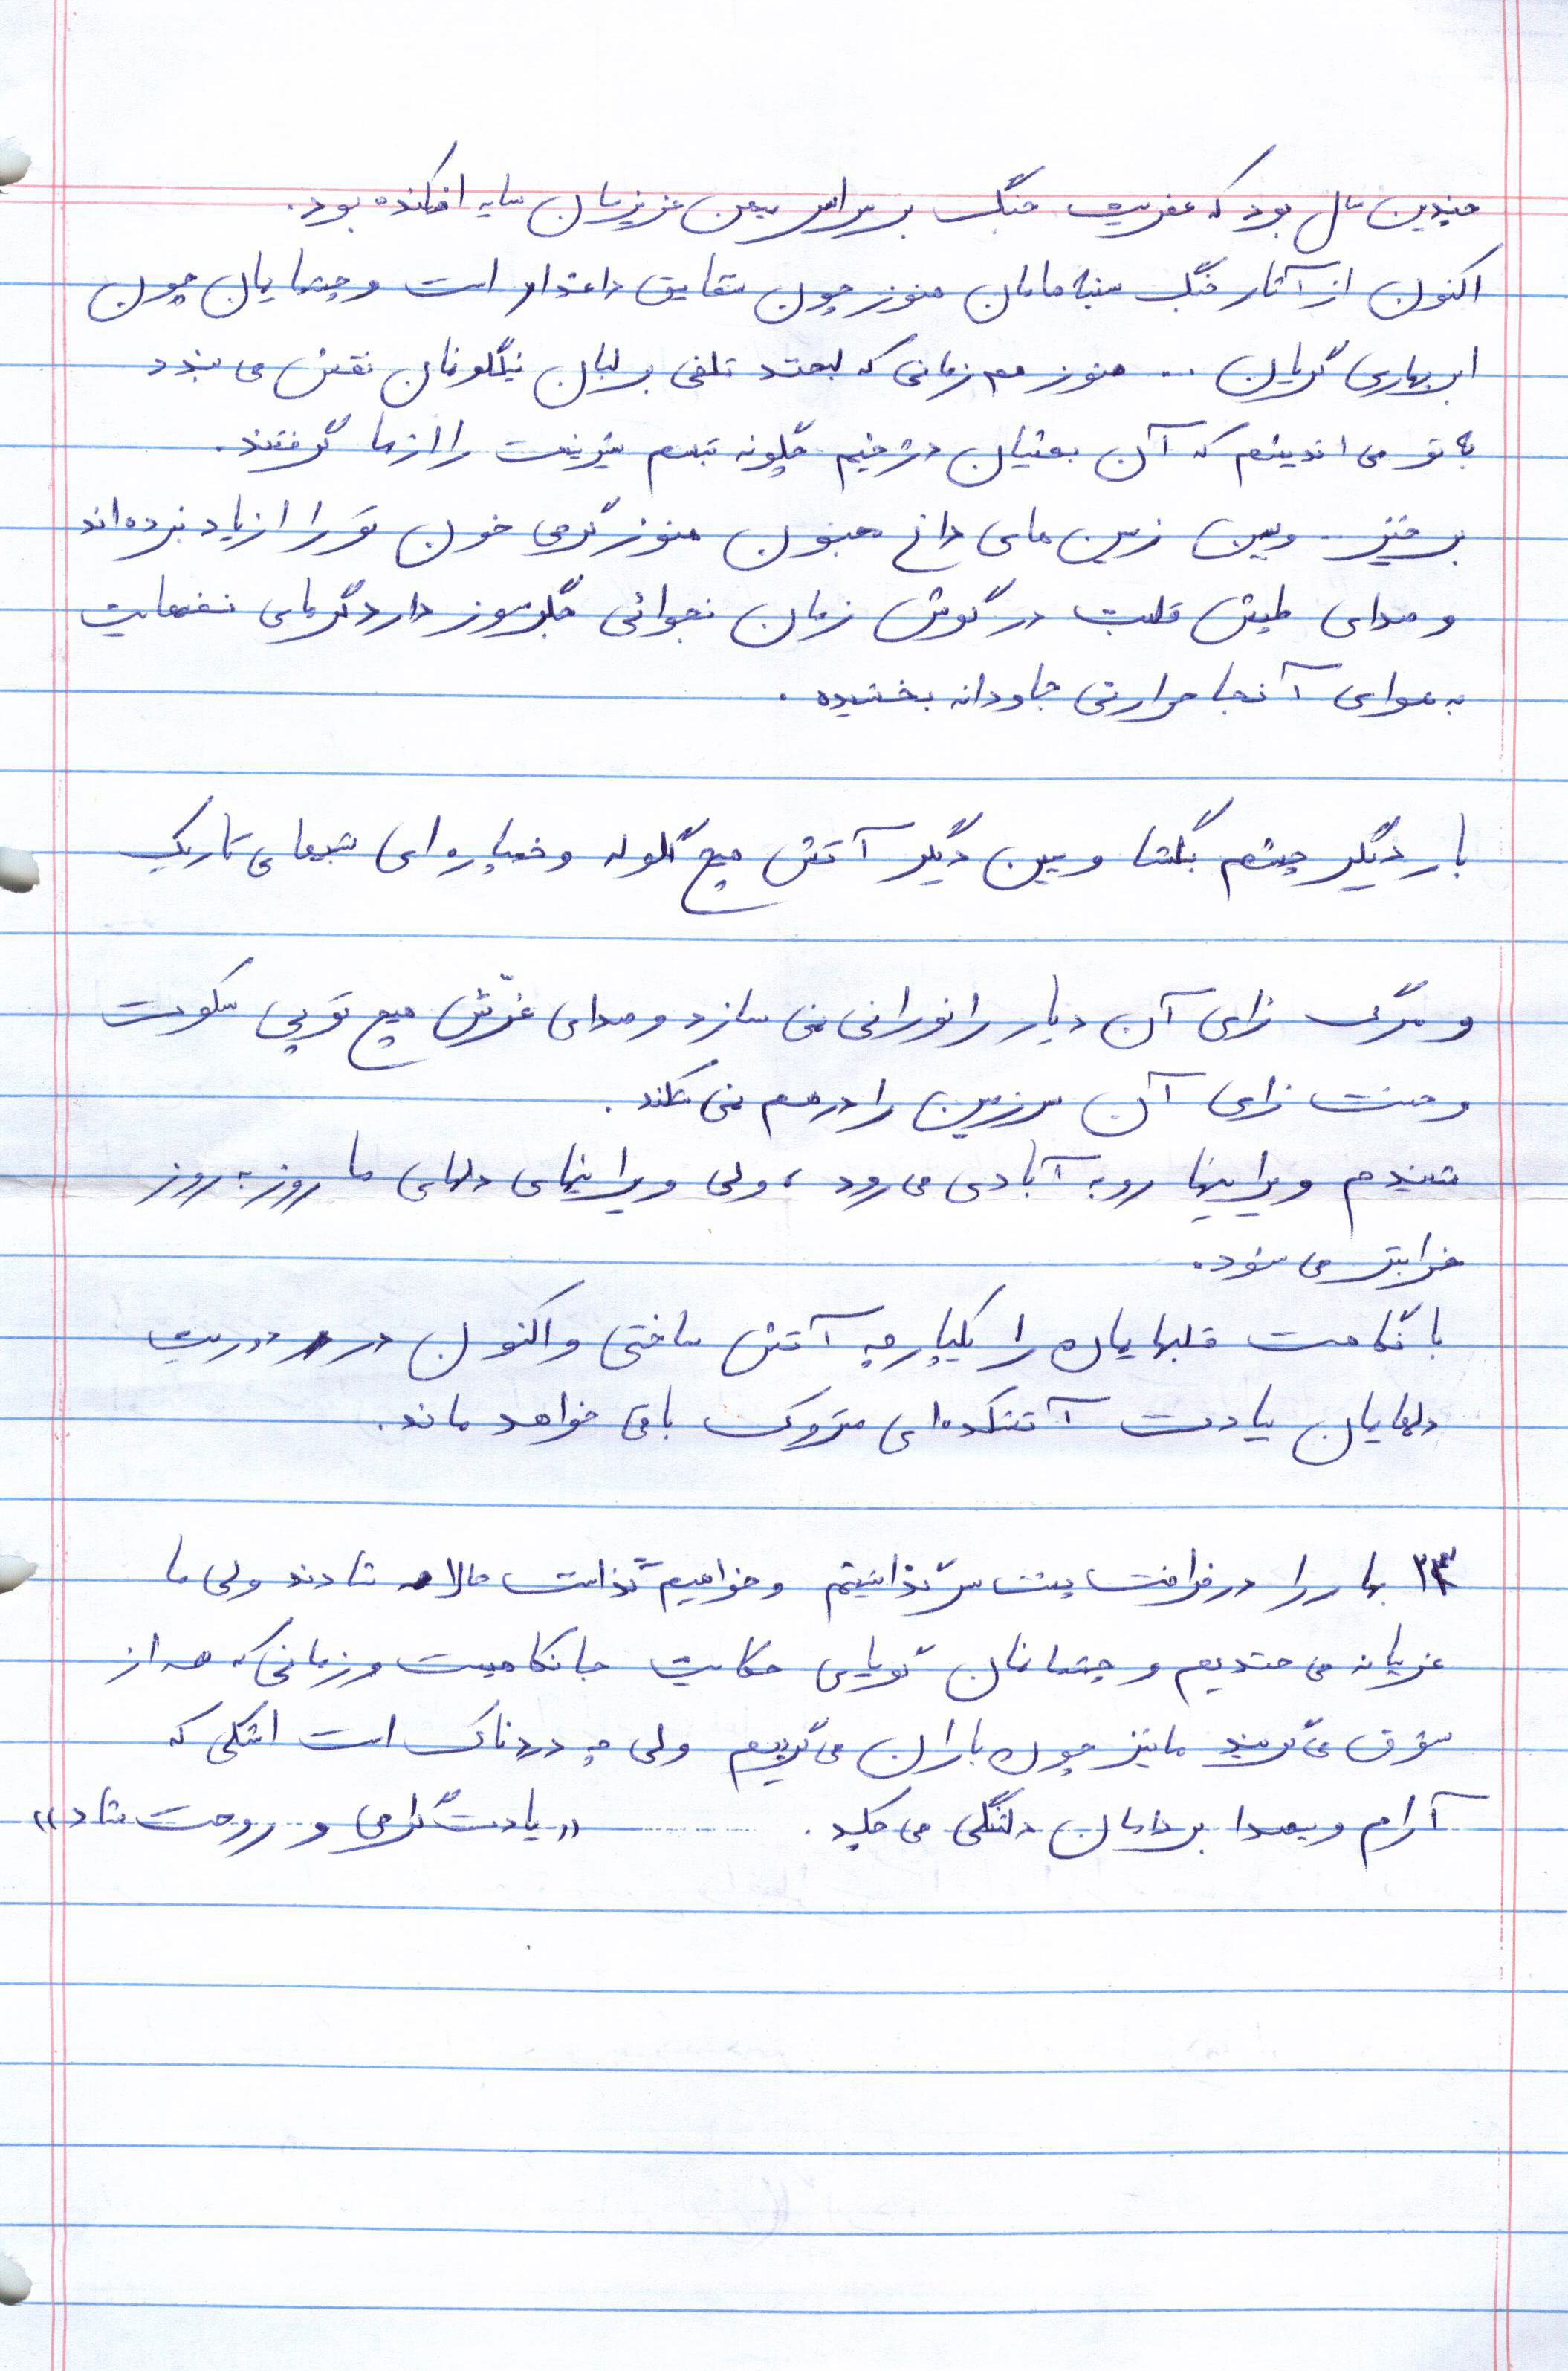 چندین سال بود که عفریت جنگ بر سراسر میهن عزیزمان سایه افکنده بود.
اکنون از آثار جنگ سینه هامان هنوز چون شقایق داغدار است و چشمایمان چون
ابر بهاری گریان ... هنوز هم زمانی که لبخند تلخی بر لبان نیلگونمان نقش می بندد
با تو می اندیشم که آن بعثیان دژخیم چگونه تبسم شیرینت را از ما گرفتند.
برخیز و ببین زمین های داغ مجنون هنوز گرمی خون تو را از یاد نبرده اند
و صدای طپش قلبت در گوش زمان نجوائی جگرسوز دارد گرمای نفسهایت
به هوای آنجا حرارتی جاودانه بخشیده .
بار دیگر چشم بگشا و ببین دیگر آتش هیچ گلوله و خمپاره ای شبهای تاریک
و مرگ زای آن دیار را نورانی نمی سازد و صدای غرّش هیچ توپی سکوت
وحشت زای آن سرزمین را درهم نمی شکند .
شنیدم ویرانیها رو به آبادی می رود ، ولی ویرانیهای دلهای ما روز به روز
خرابتر می شود.
با نگاهت قلبهایمان را یکپارچه آتش ساختی و اکنون در دوریت
دلهایمان بیادت آتشکده ای متروک باقی خواهد ماند.
۲۳ بهار را در فراقت پشت سر گذاشتیم و خواهیم گذاشت لاله شادند ولی ما
غریبانه می خندیم و چشمانمان گویای حکایت جانکاهیست و زمانی که همه از
شوق می گریند ما نیز چون باران می گرییم ولی چه دردناک است اشکی که
آرام و بیصدا بر دامان دلتنگی می چکد . «یادت گرامی و روحت شاد»